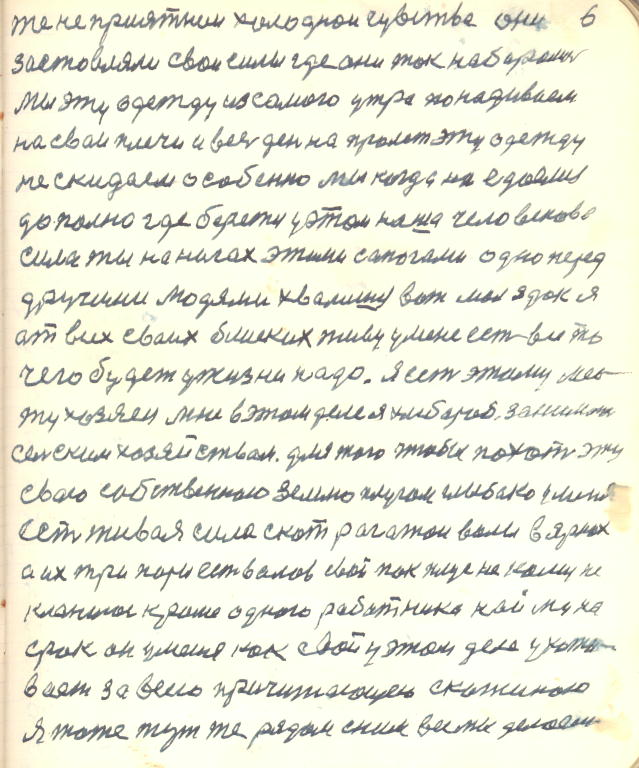 же не приятнии холоднои чувства они 6
застовляли свои сили где они так набералис
мы эту одежду из самого утра понадиваем
на сваи плечи и весь ден на пролет эту одежду
не скидаем особенно мы когда на едаемся
до полно где берется у этом наша человекова
сила ты на ногах этими сапогами одно перед
другими людями хвалишся вот мол я док я
от всех своих близких живу у мене ест все то
чего будет у жизни надо. Я ест этому мес
ту хозяен мне в этом деле я хлебороб. занимаюс
селским хозяйствам. для того чтобы похать эту
сваю собственною землю плугом глыбако у меня
ест живая сила скот рагатои воли в ярмах
а их три пари ест валов свои пок плуг не кому не
кланяюс кроме одного работника найму на
срок он у меня как свой у этом деле ухажи
вает за всею причитающею скатиною
Я тоже тут же рядом с ним все ж делаем